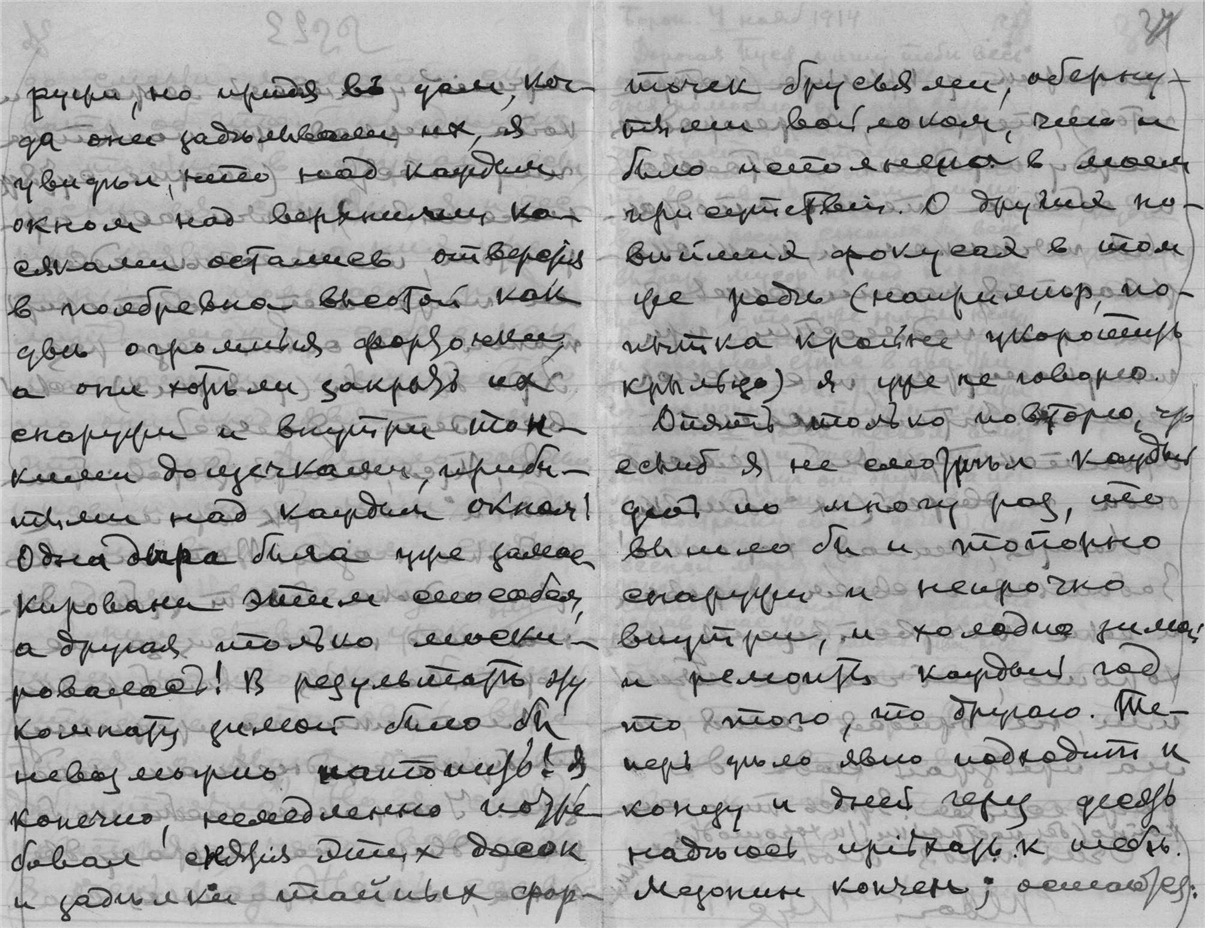 ружи, но придя въ домъ, ког-
да они задѣлывали их, я
увидѣл, что над каждым
окном над верхними ко-
сяками остались отверстія
в полбревна высотой как
двѣ огромныя форточки,
а они хотѣли закрыть их
снаружи и внутри тон-
кими дощечками, приби-
тыми над каждым окном!
Одна дыра была уже замас-
кирована этим способом,
а другая только маски-
ровалась! В результатѣ эту
комнату зимой было бы
невозможно натопить! Я
конечно, немедленно потре-
бовал снятія этих досок
и задѣлки тайных фор-
точек брусьями, оберну-
тыми войлоком, что и
было исполнено в моем
присутствіи. О других по-
добных фокусах в том
же родѣ (напримѣр, по-
пытка крайне укоротить
крыльцо) я уже не говорю.
Опять только повторю, что
еслиб я не смотрѣл каждый
день по многу раз, то
вышло бы и топорно
снаружи и непрочно
внутри, и холодно зимой
и ремонт каждый год
то того, то другого. Те-
перь дѣло явно подходит к
концу и дней через десять
надѣюсь пріѣхать к тебѣ.
Мезонин кончен;
37
Борок. 4 нояб 1914